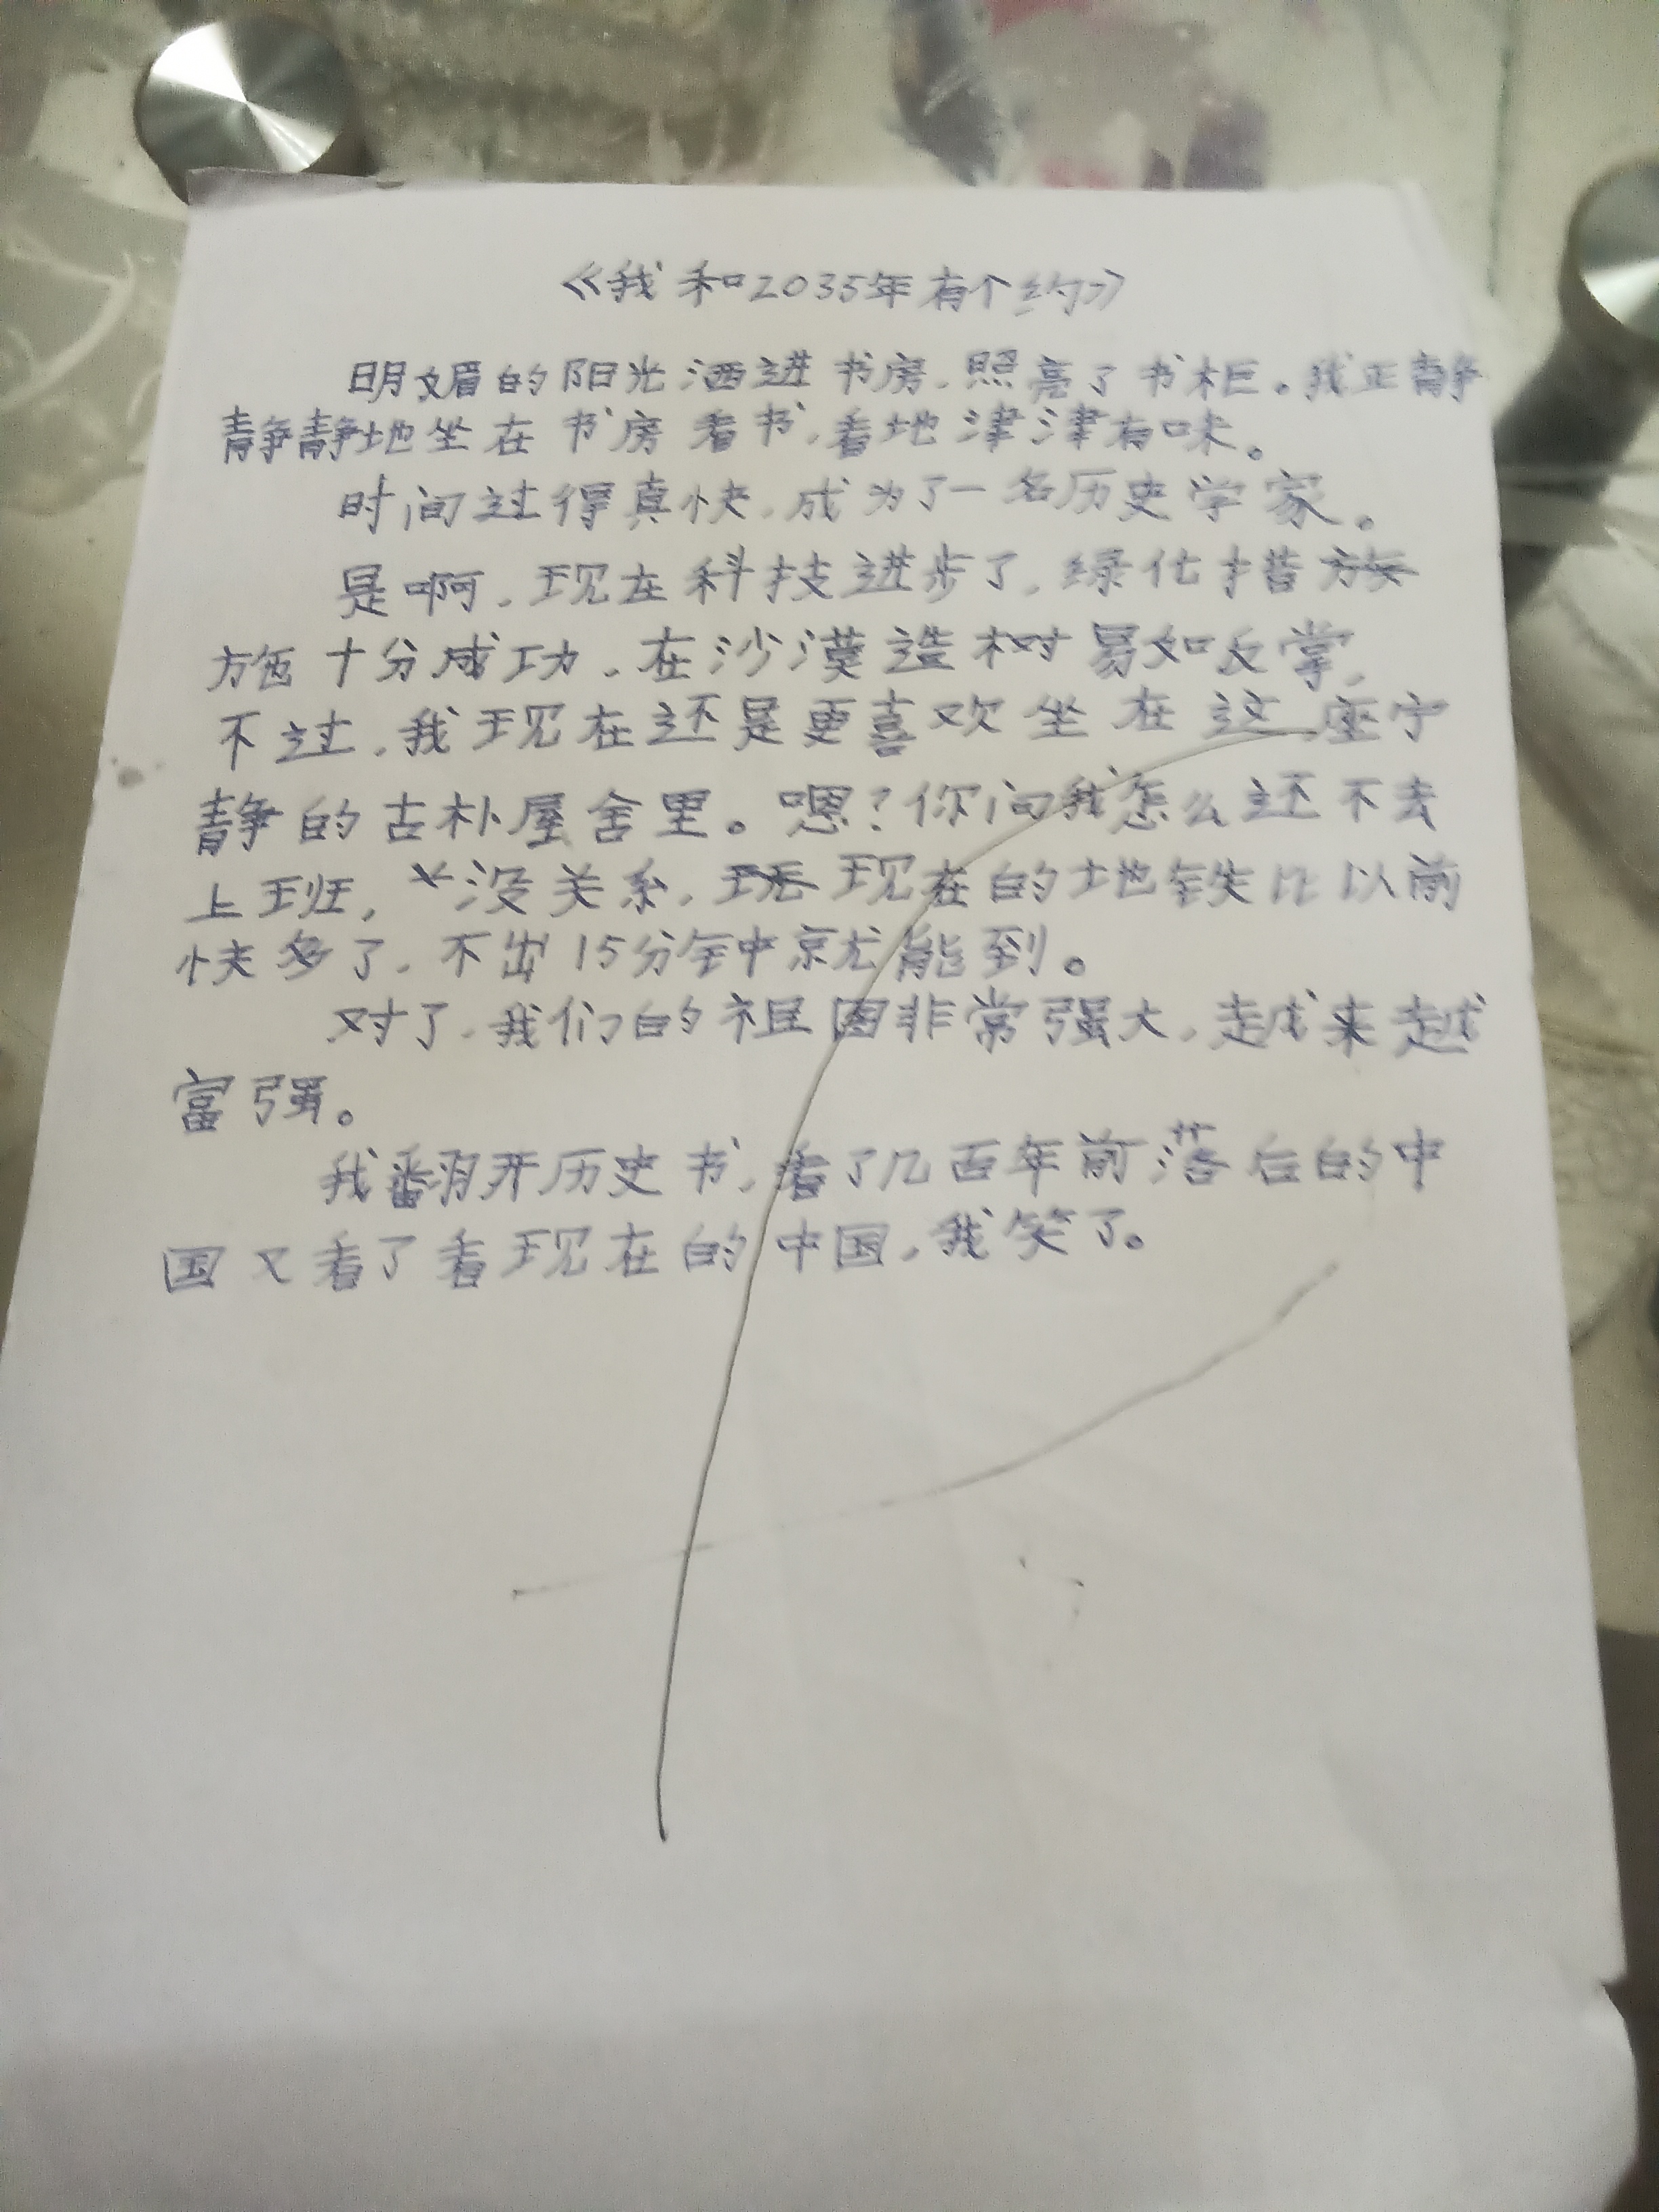 《我和2035年有个约》
明媚的阳光洒进书房,照亮了书柜。我正静
静静地坐在书房看书,看地津津有味。
时间过得真快,成为了一名历史学家。
是啊,现在科技进步了,绿化措
施十分成功,在沙漠造树易如反掌,
不过,我现在还是更喜欢坐在这座宁
静的古朴屋舍里。嗯?你问我怎么还不去
上班,没关系,现在的地铁比以前
快多了,不出15分钟就能到。
对了,我们的祖国非常强大,越来越
富强。
我翻开历史书,看了几百年前落后的中
国又看了看现在的中国,我笑了。